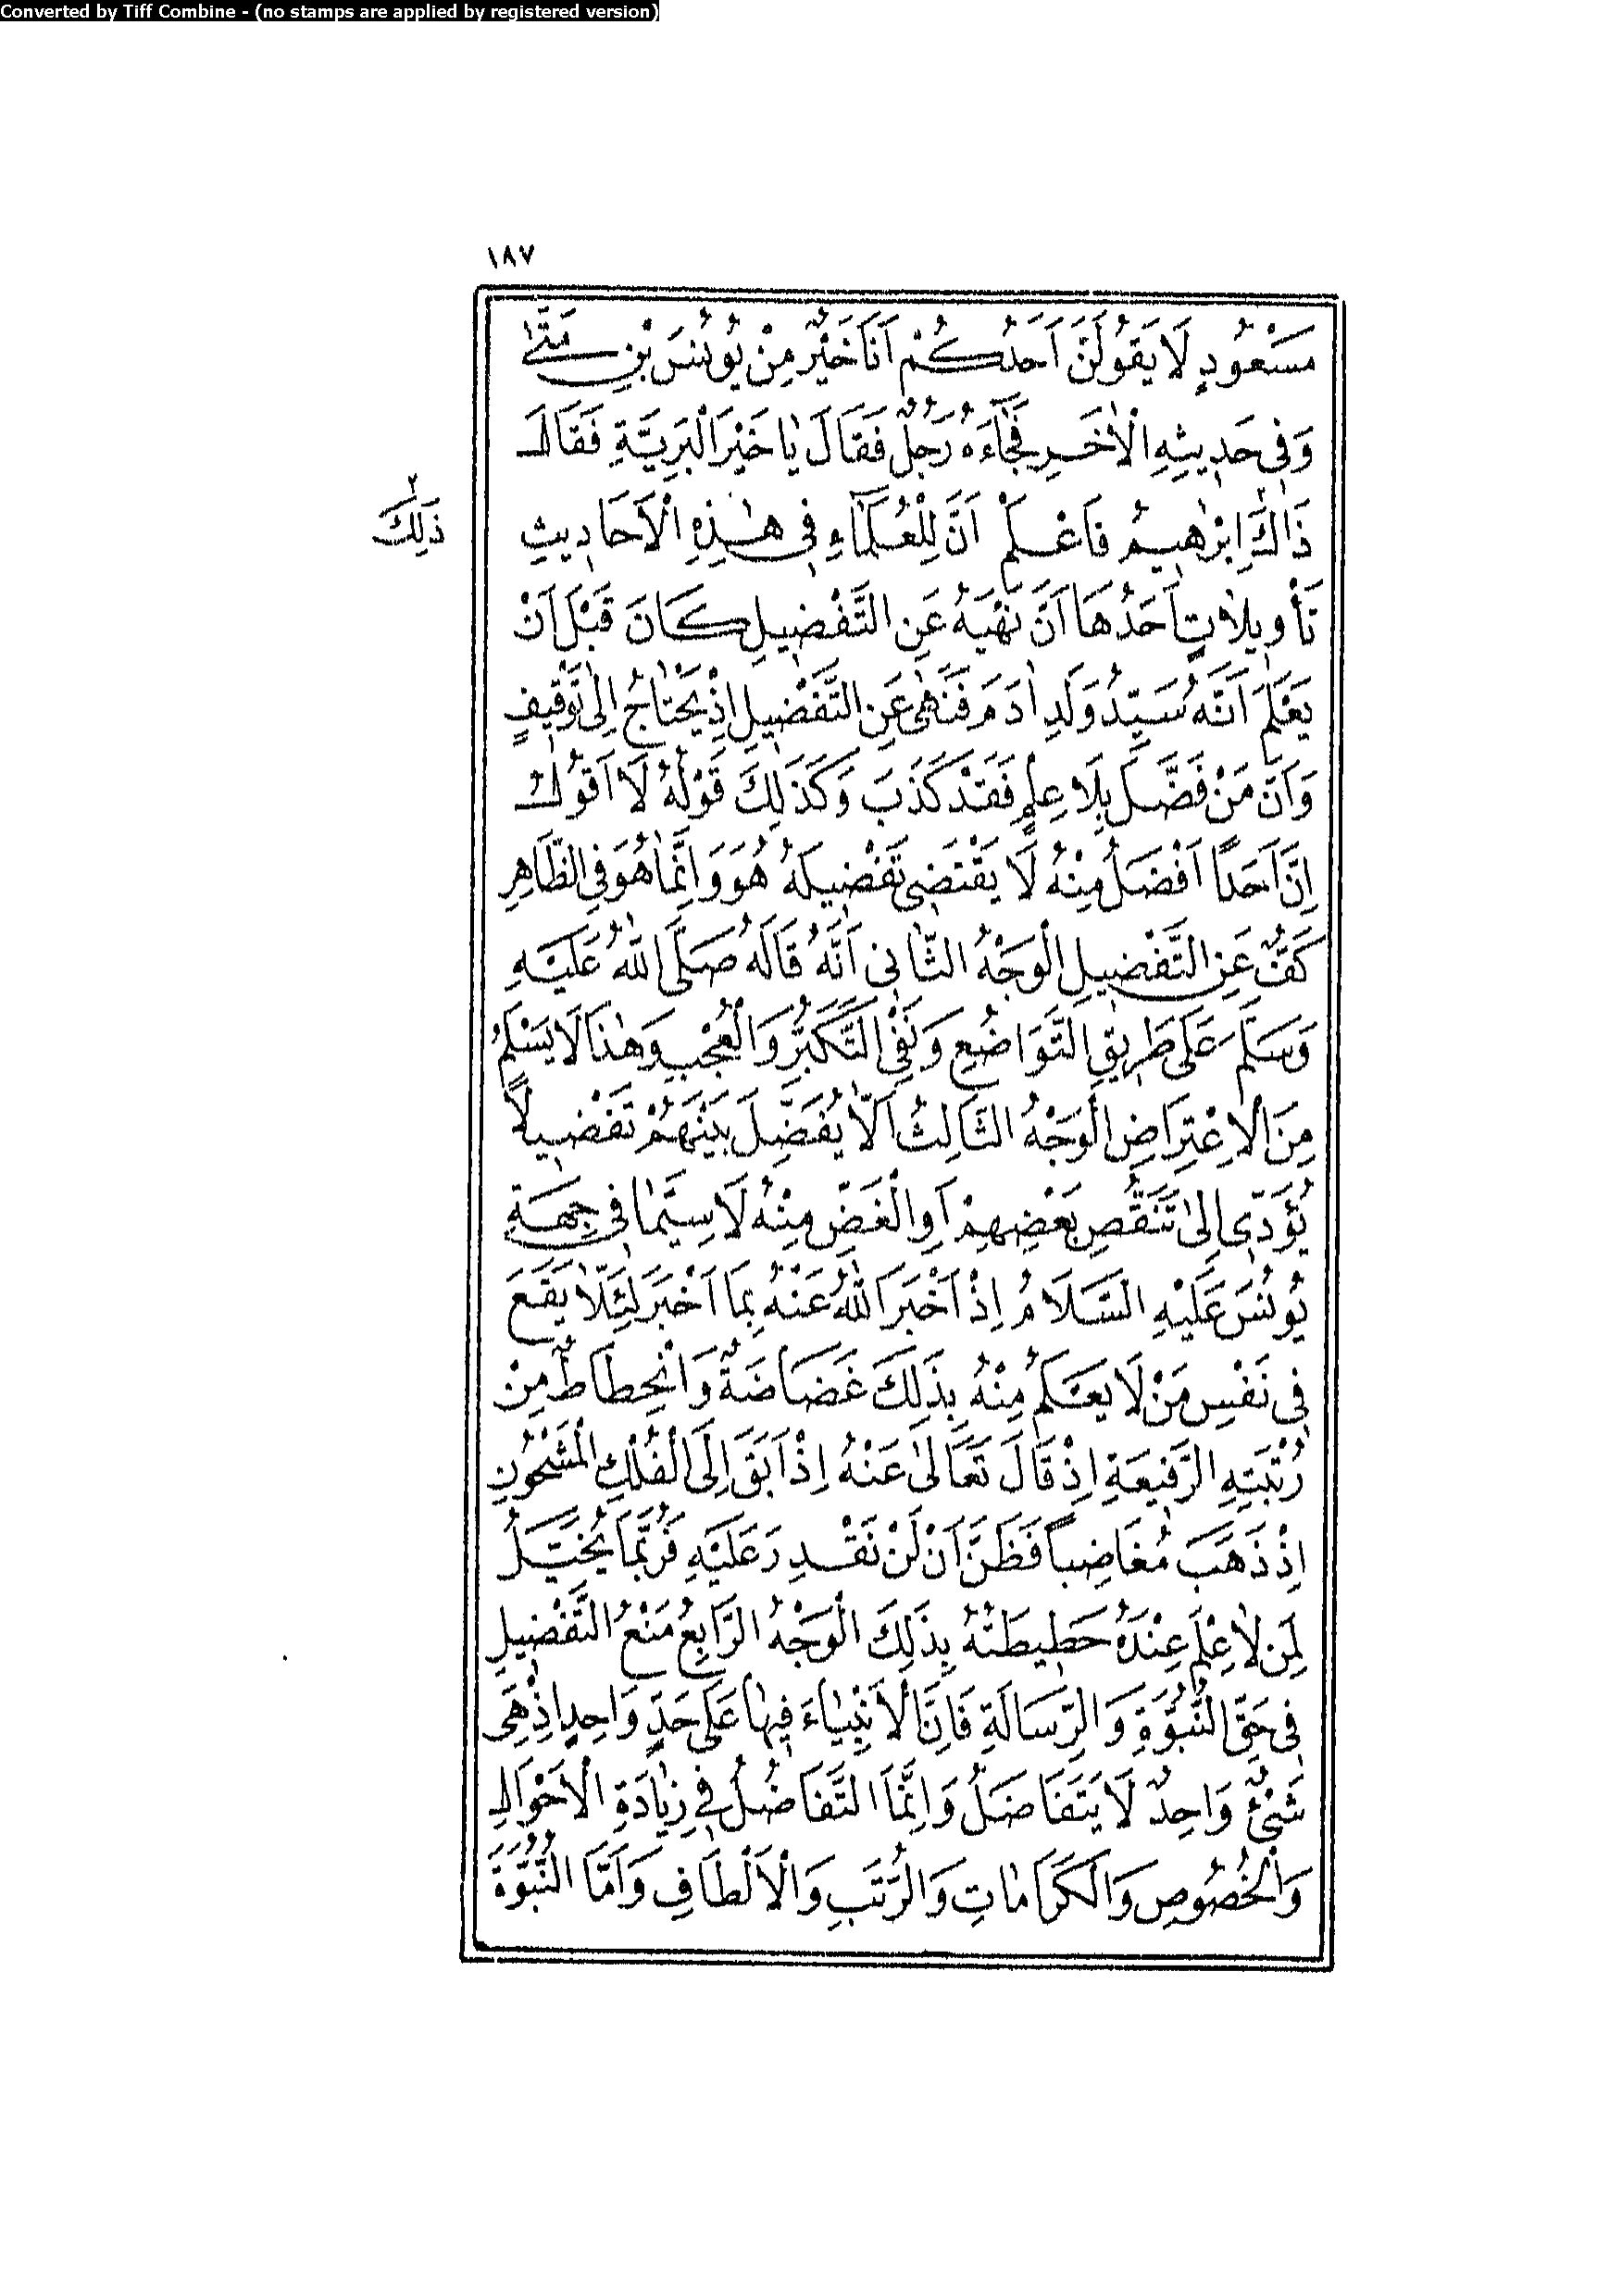 Converted by Tiff Combine - (no stamps are applied by registered version)
١٨٧
مَسْعُودٍ لَا يَقُولَنَّ اَحَدُكُمْ اَنَا خَيْرٌ مِنْ يُونُسَ بْنِ مَتّٰى
وَفِى حَدِيثِهِ الْاٰخَرِ فَجَاءَهُ رَجُلٌ فَقَالَ يَا خَيْرَ الْبَرِيَّةِ فَقَالَ
ذَاكَ اِبْرٰهِيمُ فَاعْلَمْ اَنَّ لِلْعُلَمَاءِ فِى هٰذِهِ الْاَحَادِيثِ
٢
ذَلِكَ
تَأْوِيلَاتٍ اَحَدُهَا اَنَّ نَهْيَهُ عَنِ التَّفْضِيلِ كَانَ قَبْلَ اَنْ
يَعْلَمَ اَنَّهُ سَيِّدُ وَلَدِ اٰدَمَ فَنَهٰى عَنِ التَّفْضِيلِ اِذْ يَحْتَاجُ اِلٰى تَوْقِيفٍ
وَاَنَّ مَنْ فَضَّلَ بِلَا عِلْمٍ فَقَدْ كَذَبَ وَكَذَلِكَ قَوْلُهُ لَا اَقُولُ
اِنَّ اَحَدًا اَفْضَلُ مِنْهُ لَا يَقْتَضِى تَفْضِيلَهُ هُوَ وَاِنَّمَا هُوَ فِى الظَّاهِرِ
كَفٌّ عَنِ التَّفْضِيلِ الْوَجْهُ الثَّانِى اَنَّهُ قَالَهُ صَلَّى اللّٰهُ عَلَيْهِ
وَسَلَّمَ عَلَى طَرِيقِ التَّوَاضُعِ وَنَفْىِ التَّكَبُّرِ وَالْعُجْبِ وَهٰذَا لَا يَسْلَمُ
مِنَ الْاِعْتِرَاضِ الْوَجْهُ الثَّالِثُ اَلَّا يُفَضِّلَ بَيْنَهُمْ تَفْضِيلًا
يُؤَدِّى اِلٰى تَنَقُّصِ بَعْضِهِمْ اَوِ الْغَضِّ مِنْهُ لَا سِيَّمَا فِى جِهَةِ
يُونُسَ عَلَيْهِ السَّلَامُ اِذْ اَخْبَرَ اللّٰهُ عَنْهُ بِمَا اَخْبَرَ لِئَلَّا يَقَعَ
فِى نَفْسِ مَنْ لَا يَعْلَمُ مِنْهُ بِذَلِكَ غَضَاضَةٌ وَانْحِطَاطٌ مِنْ
رُتْبَتِهِ الرَّفِيعَةِ اِذْ قَالَ تَعَالٰى عَنْهُ اِذْ اَبَقَ اِلَى الْفُلْكِ الْمَشْحُونِ
اِذْ ذَهَبَ مُغَاضِبًا فَظَنَّ اَنْ لَنْ نَقْدِرَ عَلَيْهِ فَرُبَّمَا يُخَيَّلُ
لِمَنْ لَا عِلْمَ عِنْدَهُ حَطِيطَتُهُ بِذَلِكَ الْوَجْهُ الرَّابِعُ مَنْعُ التَّفْضِيلِ
فِى حَقِّ النُّبُوَّةِ وَالرِّسَالَةِ فَاِنَّ الْاَنْبِيَاءَ فِيهَا عَلَى حَدٍّ وَاحِدٍ اِذْ هِىَ
شَىْءٌ وَاحِدٌ لَا يَتَفَاضَلُ وَاِنَّمَا التَّفَاضُلُ فِى زِيَادَةِ الْاَحْوَالِ
وَالْخُصُوصِ وَالْكَرَامَاتِ وَالرُّتَبِ وَالْاَلْطَافِ وَاَمَّا النُّبُوَّةُ